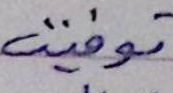 توفيت